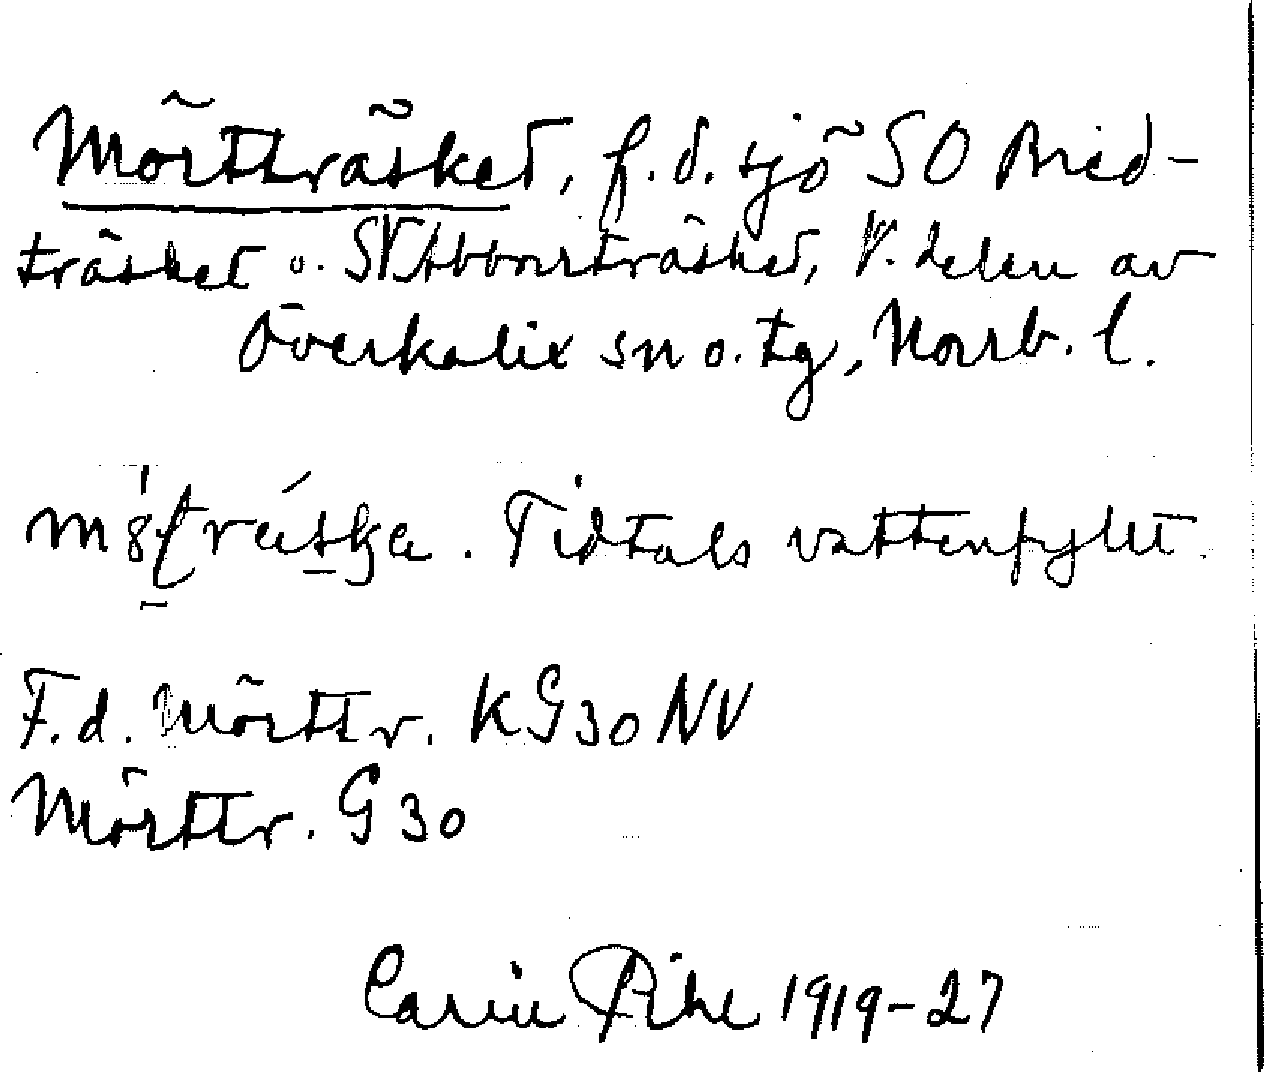 Mörtträsket, f.d. sjö SO Bred-
träsket o. SV Abborrträsket, V. delen av
Överkalix sn o. tg, Norrb. l.
Tidtals vattenfyllt.
F.d. Mörttr. KG30NV
Mörttr. G30
Carin Pihl 1919-27